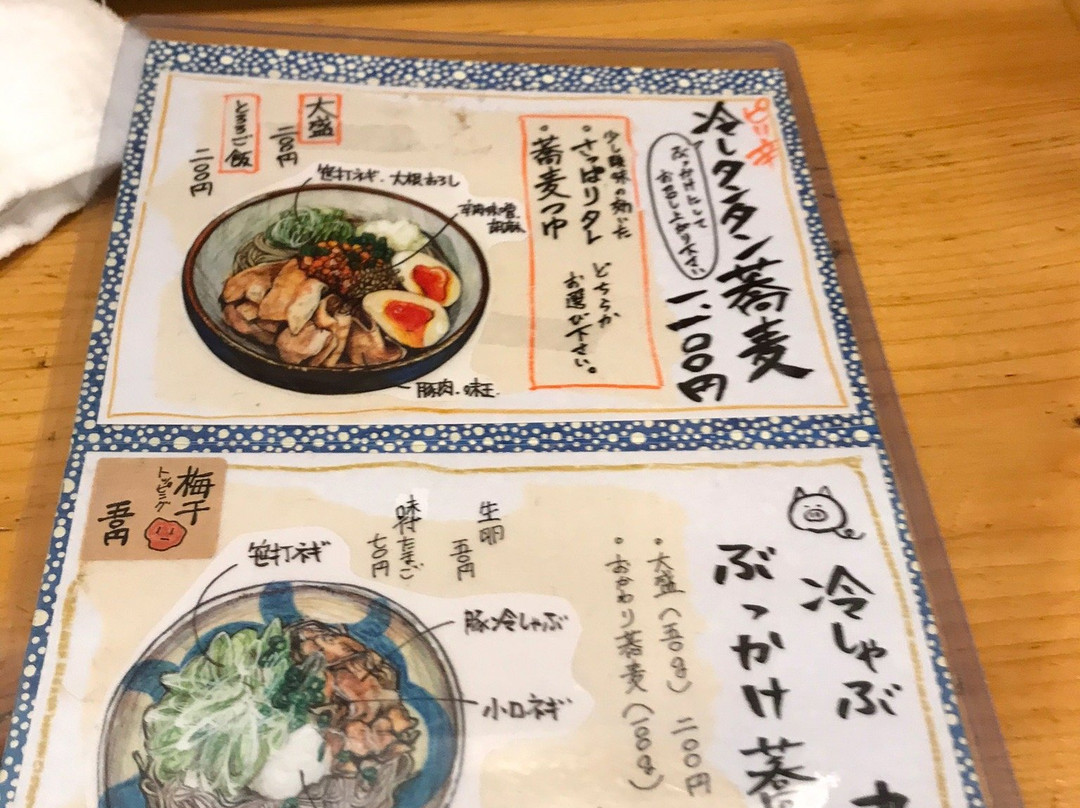 ピリ辛
冷しタンタン蕎麦
ぶっかけにして
お召し上がり下さい
一、一〇〇円
少し酸味の効いた
・さっぱりタレ
・蕎麦つゆ
どちらか
お選び下さい。
大盛
二〇〇円
とろろご飯
二〇〇円
笹打ネギ・大根おろし
辛肉味噌、
胡麻
豚肉・味玉
冷しゃぶ
ぶっかけ蕎
・大盛(一五〇g) 二〇〇円
・おかわり蕎麦(一〇〇g)
生卵
五〇円
味付たまご
七〇円
梅干
トッピング
五〇円
笹打ネギ
豚冷しゃぶ
小口ネギ